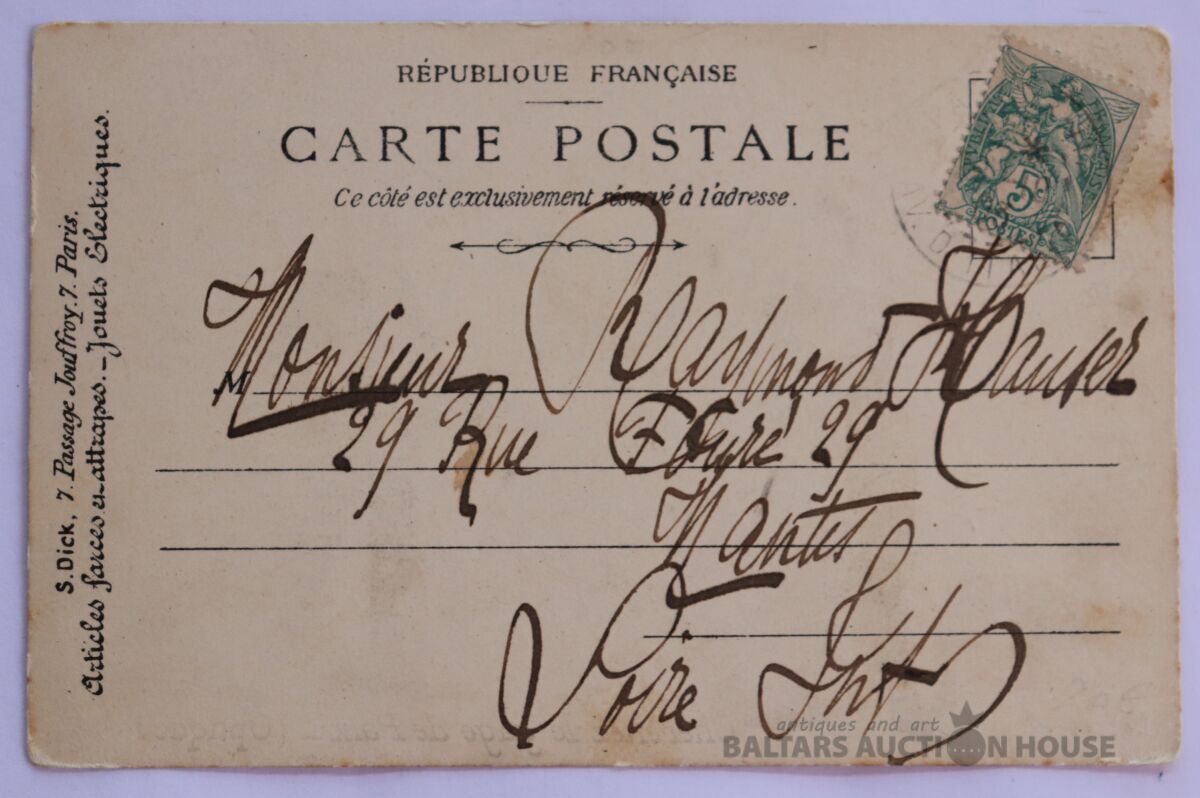 RÉPUBLIQUE FRANÇAISE
CARTE POSTALE
Ce côté est exclusivement réservé à l'adresse.
S. Dick, 7. Passage Jouffroy. 7. Paris.
Articles farces et attrapes. _ Jouets Electriques.
5c
POSTES
M
Monsieur Raymond Hauser
29 Rue Fouré 29
Nantes
Loire Inf
antiques and art
BALTARS AUCTION HOUSE